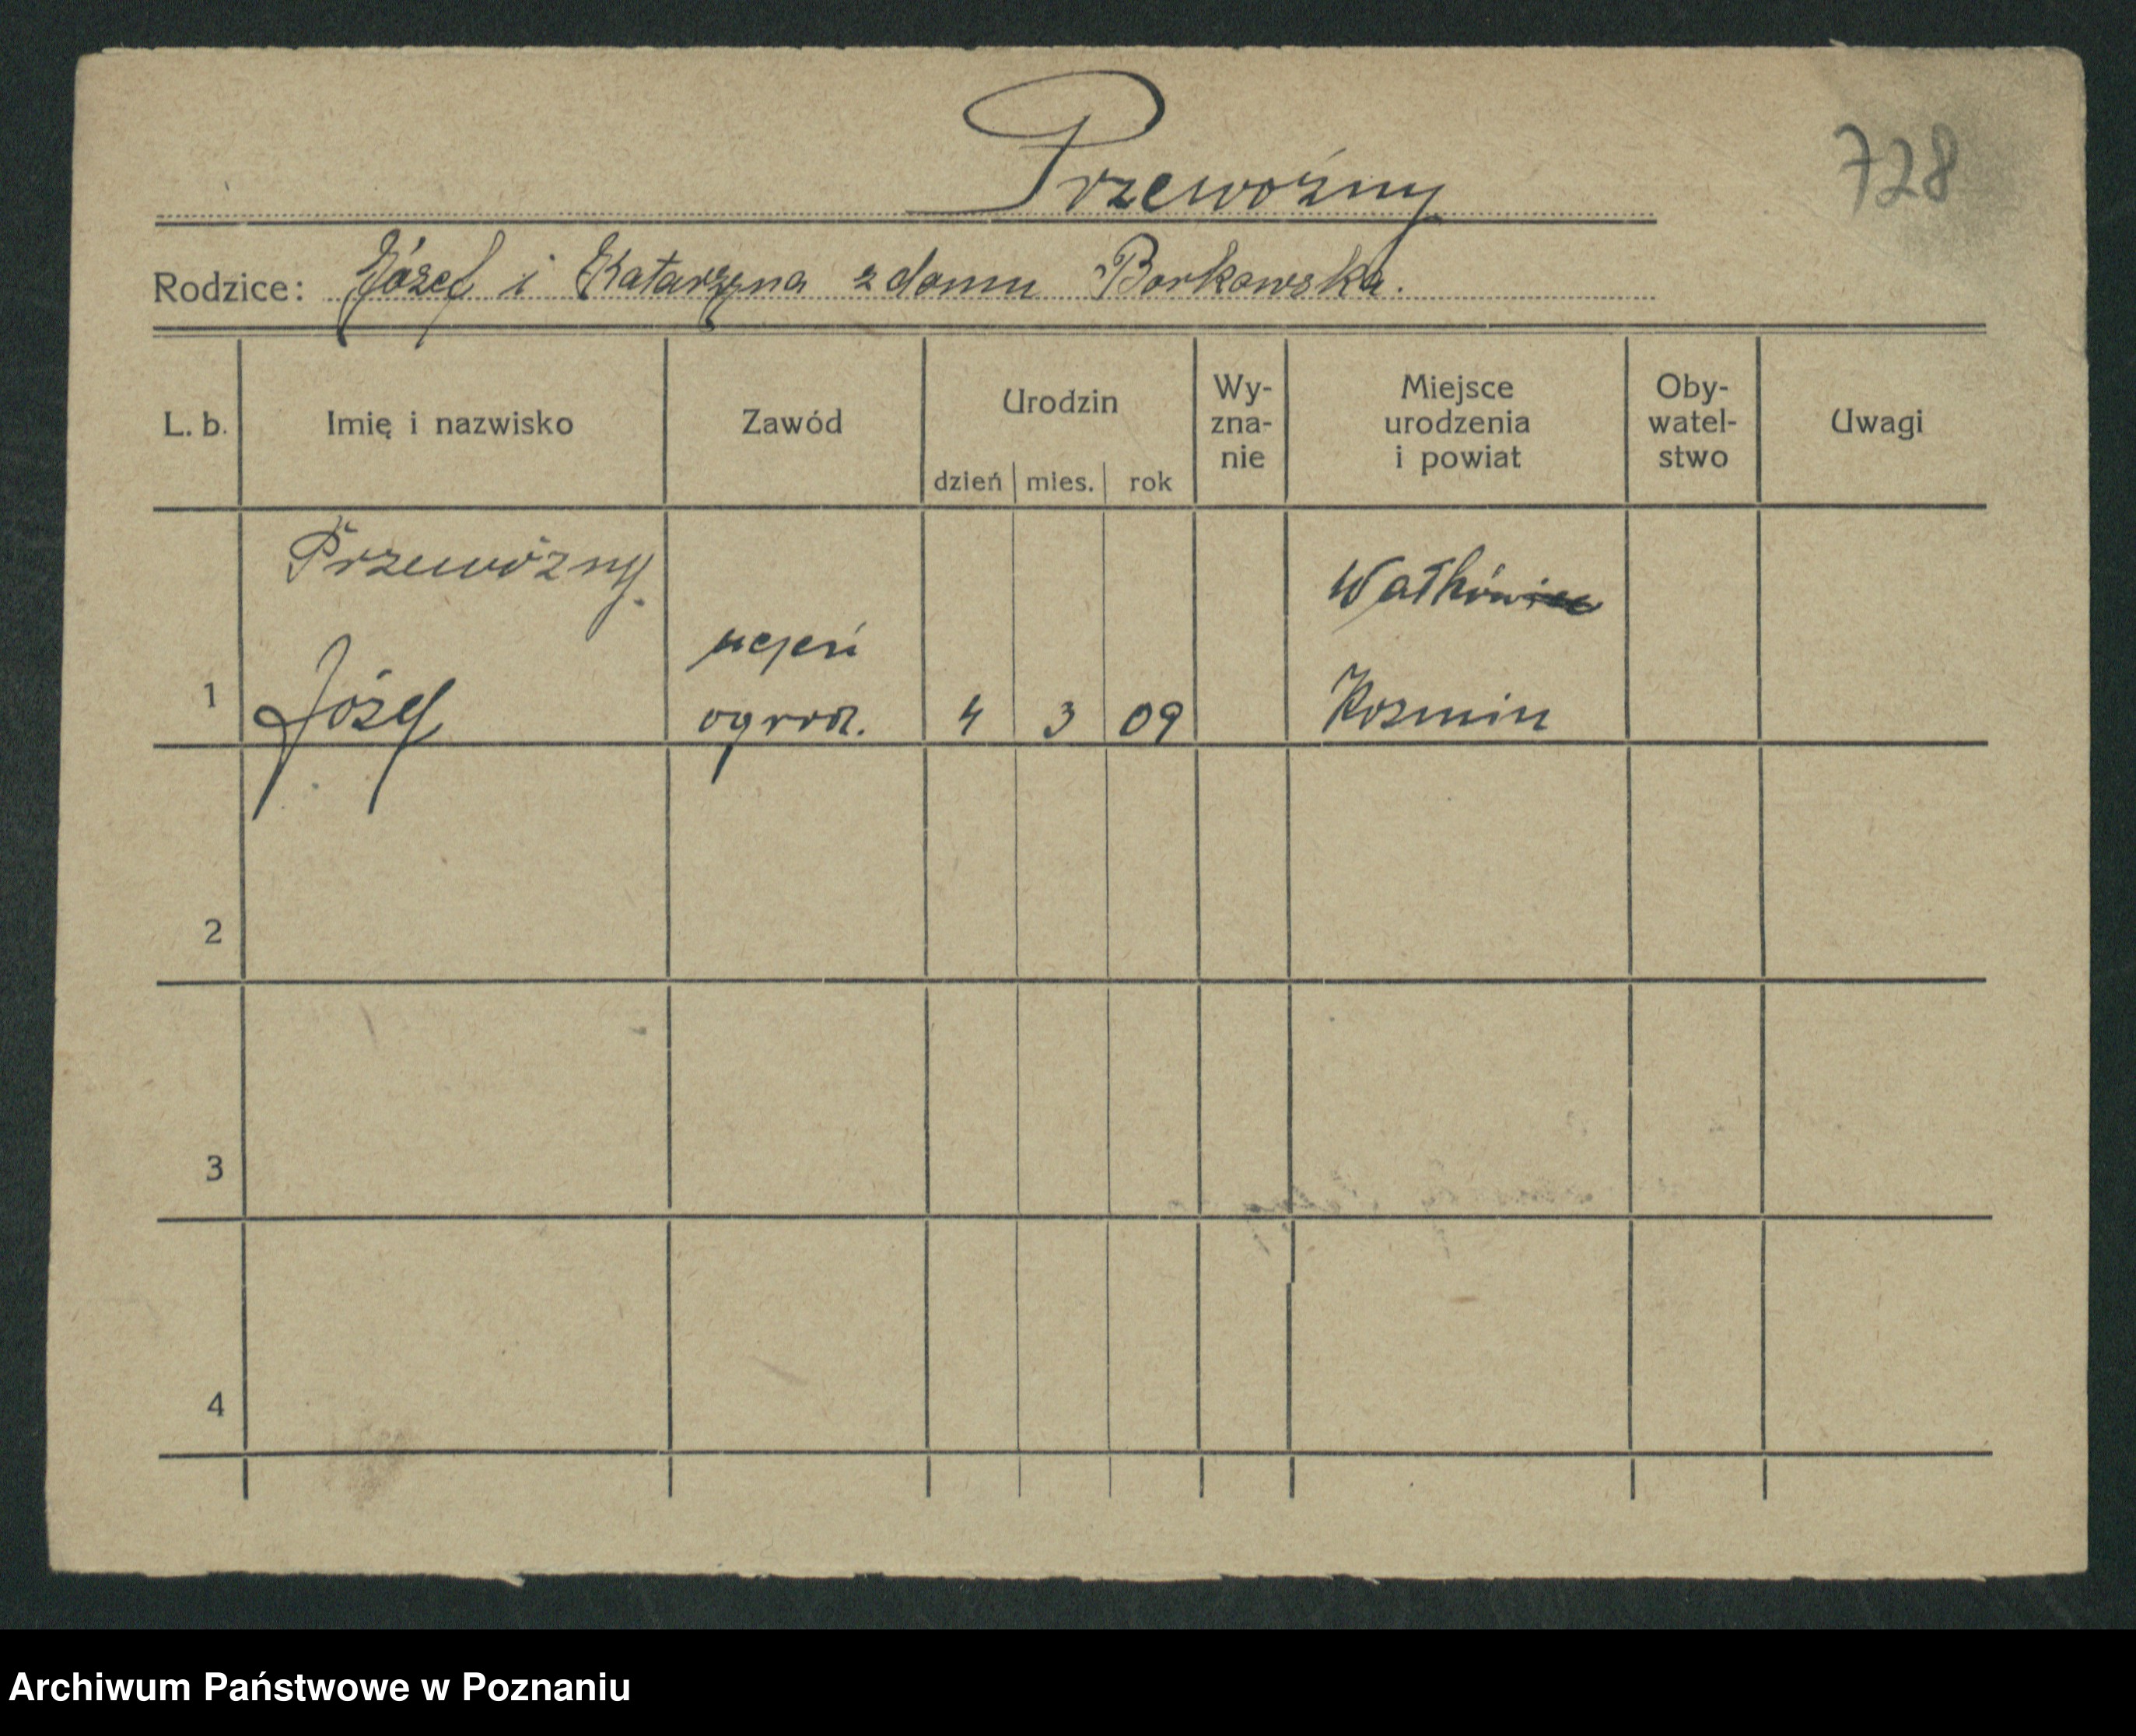 Przewoźny
728
Rodzice: Józef i Katarzyna z domu Borkowska.
L. b. Imię i nazwisko Zawód Urodzin Wy- zna- nie Miejsce urodzenia i powiat Oby- watel- stwo Uwagi
dzień mies. rok
Przewoźny.
uczeń
1 Józef ogrod. 4 3 09 Kozmin
2
3
4
Archiwum Państwowe w Poznaniu